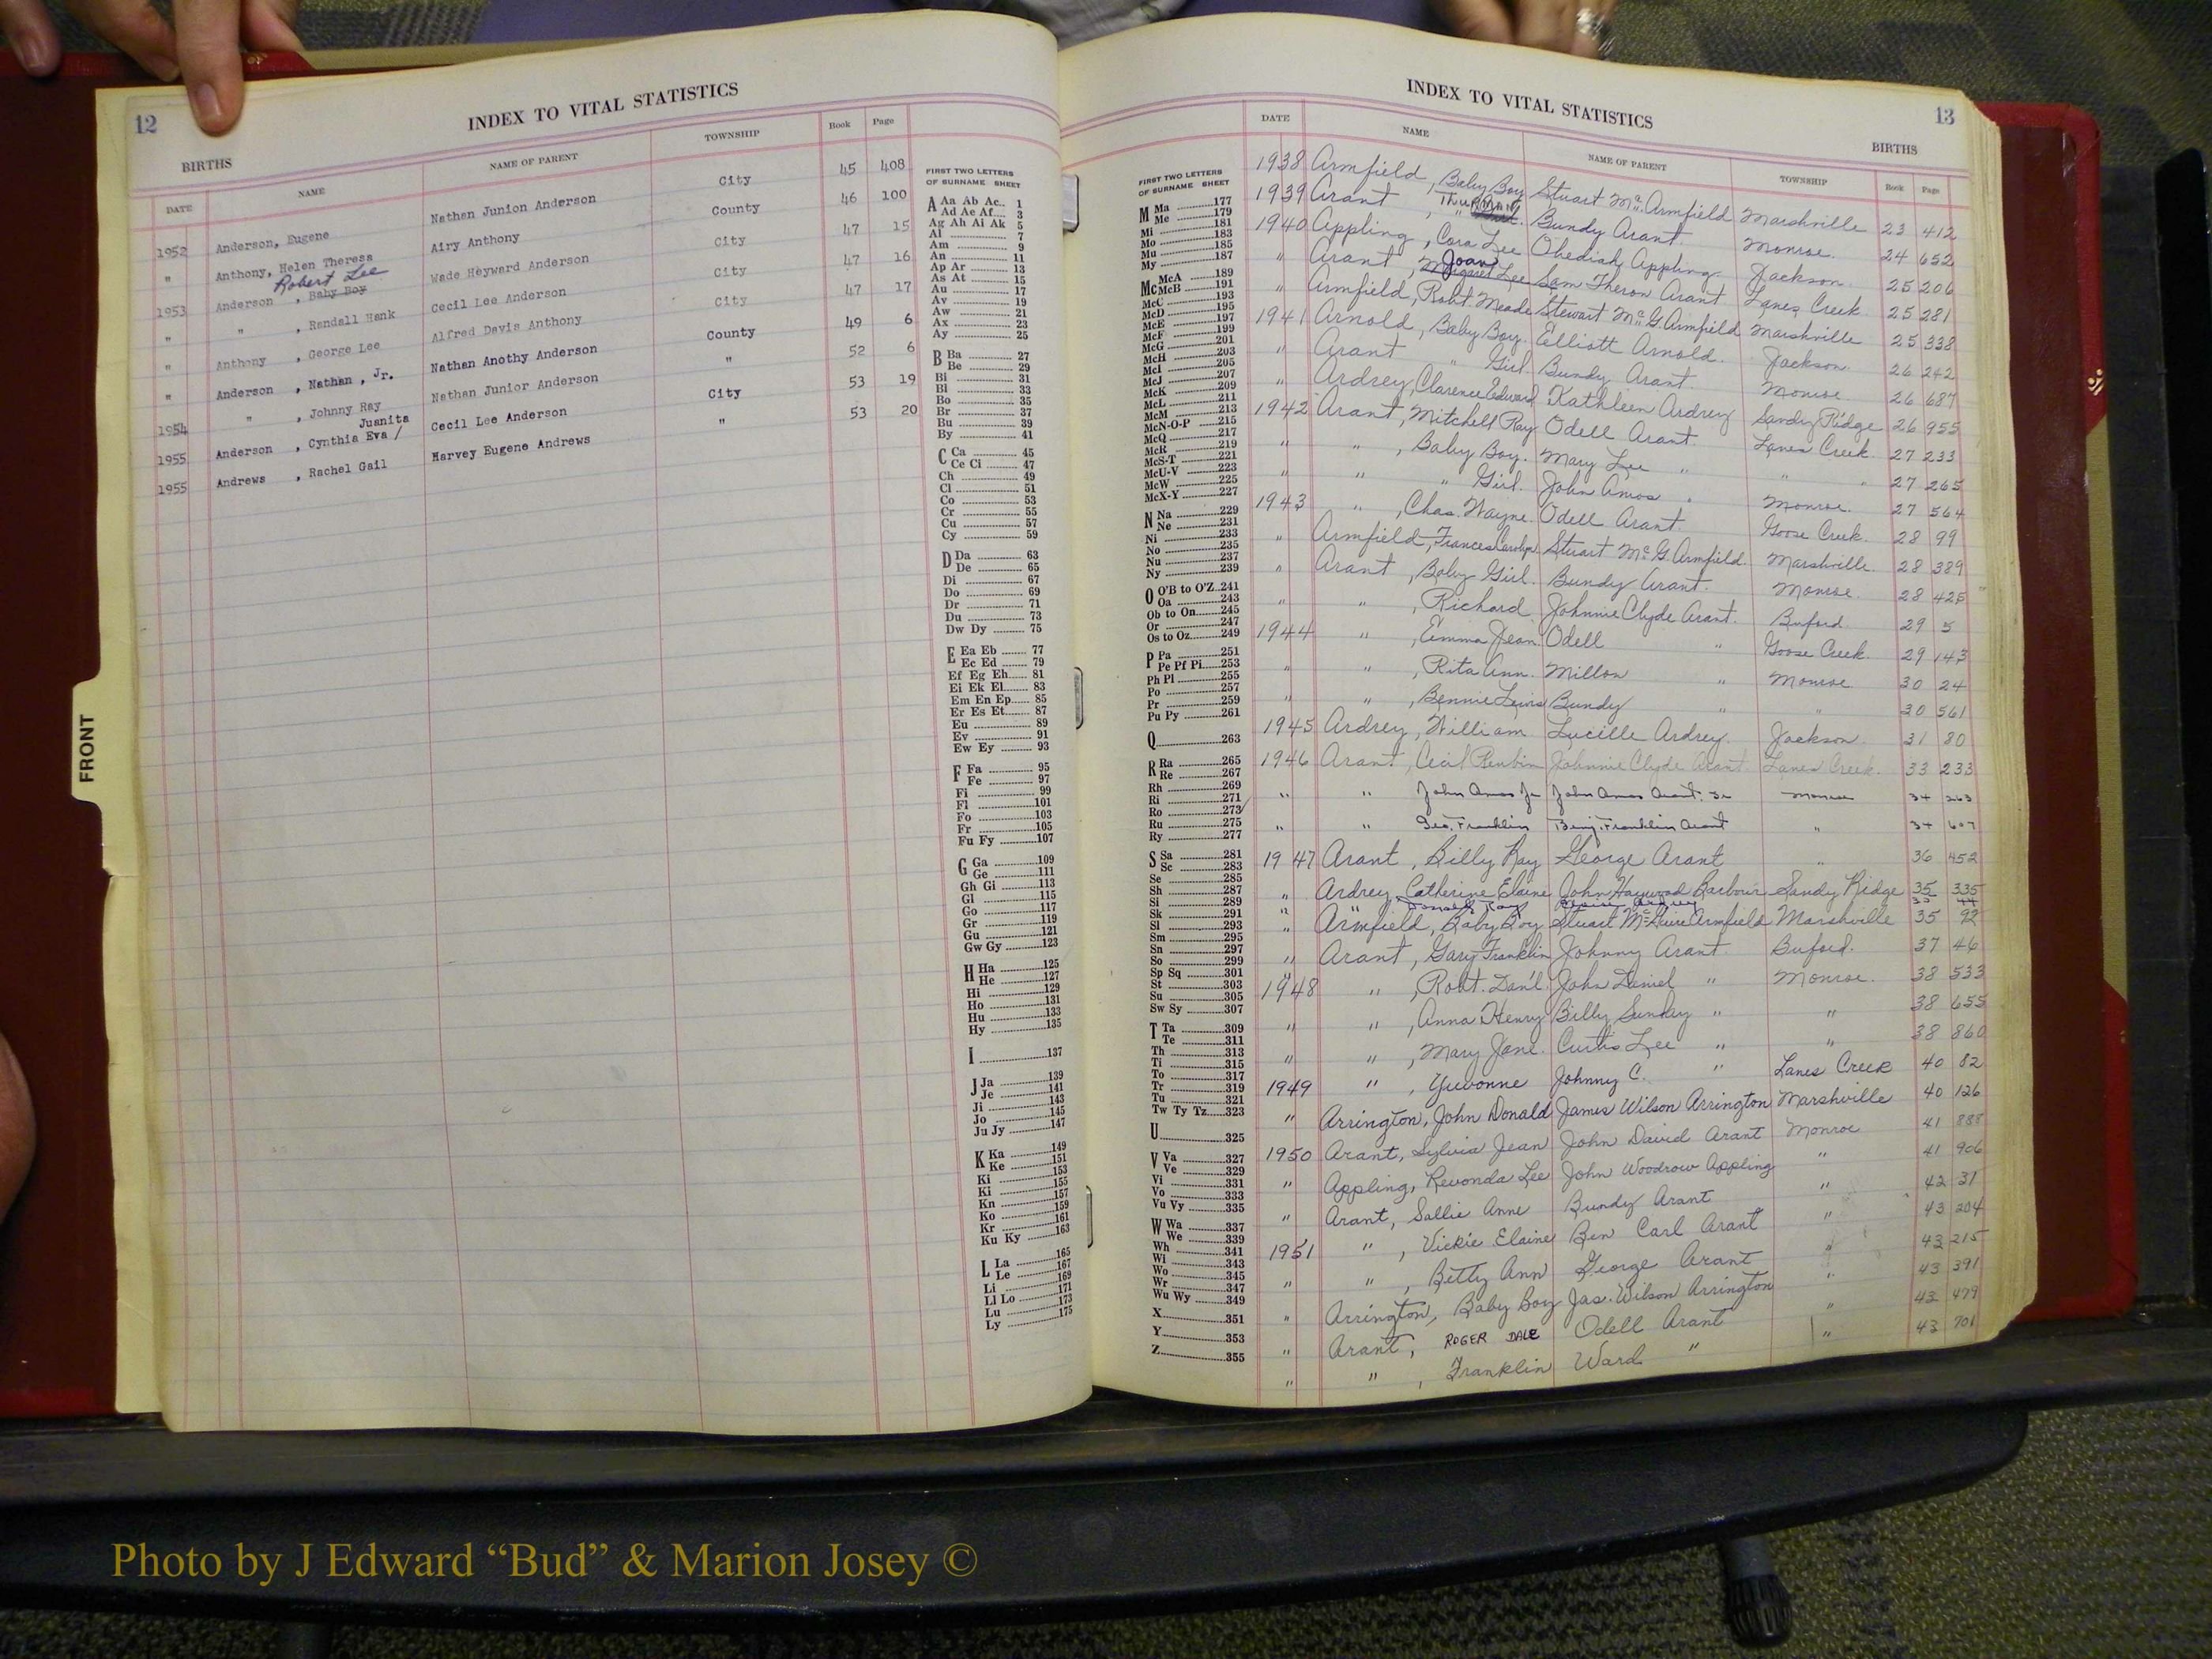 12
INDEX TO VITAL STATISTICS
BIRTHS
DATE NAME NAME OF PARENT TOWNSHIP Book Page
1952 Anderson, Eugene Nathan Junion Anderson City 45 408
" Anthony, Helen Theresa Airy Anthony County 46 100
Robert Lee
1953 Anderson , Baby Boy Wade Heyward Anderson City 47 15
" " , Randall Hank Cecil Lee Anderson City 47 16
" Anthony , George Lee Alfred Davis Anthony City 47 17
" Anderson , Nathan , Jr. Nathan Anothy Anderson County 49 6
1954 " , Johnny Ray Nathan Junior Anderson " 52 6
Juanita
1955 Anderson , Cynthia Eva / Cecil Lee Anderson City 53 19
1955 Andrews , Rachel Gail Harvey Eugene Andrews " 53 20
FIRST TWO LETTERS
OF SURNAME SHEET
A Aa Ab Ac.. 1
Ad Ae Af.... 3
Ag Ah Ai Ak 5
Al 7
Am 9
An 11
Ap Ar 13
As At 15
Au 17
Av 19
Aw 21
Ax 23
Ay 25
B Ba 27
Be 29
Bi 31
Bl 33
Bo 35
Br 37
Bu 39
By 41
C Ca 45
Ce Ci 47
Ch 49
Cl 51
Co 53
Cr 55
Cu 57
Cy 59
D Da 63
De 65
Di 67
Do 69
Dr 71
Du 73
Dw Dy 75
E Ea Eb 77
Ec Ed 79
Ef Eg Eh 81
Ei Ek El 83
Em En Ep 85
Er Es Et 87
Eu 89
Ev 91
Ew Ey 93
F Fa 95
Fe 97
Fi 99
Fl 101
Fo 103
Fr 105
Fu Fy 107
G Ga 109
Ge 111
Gh Gi 113
Gl 115
Go 117
Gr 119
Gu 121
Gw Gy 123
H Ha 125
He 127
Hi 129
Ho 131
Hu 133
Hy 135
I 137
J Ja 139
Je 141
Ji 143
Jo 145
Ju Jy 147
K Ka 149
Ke 151
Ki 153
Ki 155
Kn 157
Ko 159
Kr 161
Ku Ky 163
L La 165
Le 167
Li 169
Ll Lo 171
Lu 173
Ly 175
FRONT
INDEX TO VITAL STATISTICS
13
BIRTHS
DATE NAME NAME OF PARENT TOWNSHIP Book Page
FIRST TWO LETTERS
OF SURNAME SHEET
M Ma 177
Me 179
Mi 181
Mo 183
Mu 185
My 187
Mc McA 189
McB 191
McC 193
McD 195
McE 197
McF 199
McG 201
McH 203
McI 205
McJ 207
McK 209
McL 211
McM 213
McN-O-P 215
McQ 217
McR 219
McS-T 221
McU-V 223
McW 225
McX-Y 227
N Na 229
Ne 231
Ni 233
No 235
Nu 237
Ny 239
O O'B to O'Z 241
Oa 243
Ob to On 245
Or 247
Os to Oz 249
P Pa 251
Pe Pf Pi 253
Ph Pl 255
Po 257
Pr 259
Pu Py 261
Q 263
R Ra 265
Re 267
Rh 269
Ri 271
Ro 273
Ru 275
Ry 277
S Sa 281
Sc 283
Se 285
Sh 287
Si 289
Sk 291
Sl 293
Sm 295
Sn 297
So 299
Sp Sq 301
St 303
Su 305
Sw Sy 307
T Ta 309
Te 311
Th 313
Ti 315
To 317
Tr 319
Tu 321
Tw Ty Tz 323
U 325
V Va 327
Ve 329
Vi 331
Vo 333
Vu Vy 335
W Wa 337
We 339
Wh 341
Wi 343
Wo 345
Wr 347
Wu Wy 349
X 351
Y 353
Z 355
1938 Armfield, Baby Boy Stuart Mc Armfield Marshville 23 412
1939 Arant , " Thurman Bundy Arant. Monroe. 24 652
1940 Appling, Cora Lee Obediah Appling Jackson. 25 206
Joan
" Arant, Margaret Lee Sam Theron Arant Lanes Creek. 25 281
" Armfield, Robt. Meade Stewart Mc.G. Armfield Marshville 25 338
1941 Arnold, Baby Boy. Elliott Arnold. Jackson. 26 242
" Arant " Girl. Bundy Arant. Monroe. 26 687
" Ardrey, Clarence Edward Kathleen Ardrey Sandy Ridge 26 955
1942 Arant, Mitchell Ray Odell Arant. Lanes Creek. 27 233
" " , Baby Boy. Mary Lee " " " 27 265
" " " Girl. John Amos " Monroe. 27 564
1943 " , Chas. Wayne. Odell Arant. Goose Creek. 28 99
" Armfield, Frances Carolyn. Stuart Mc.G. Armfield. Marshville. 28 389
" Arant , Baby Girl. Bundy Arant. Monroe. 28 425
" " , Richard Johnnie Clyde Arant. Buford 29 5
1944 " , Emma Jean Odell " Goose Creek. 29 143
" " , Rita Ann. Millon " Monroe 30 24
" " , Bennie Lewis Bundy " " 30 561
1945 Ardrey, William Lucille Ardrey. Jackson. 31 80
1946 Arant, Cecil Reubin Johnnie Clyde Arant Lanes Creek. 33 233
" " John Amos Jr John Amos Arant, Sr Monroe 34 263
" " Geo. Franklin Benj. Franklin Arant " 34 607
1947 Arant, Billy Ray George Arant " 36 452
" Ardrey Catherine Elaine John Haywood Barbour Sandy Ridge 35 335
" " Donald Ray 35 44
" Armfield, Baby Boy Stuart McGuire Armfield Marshville 35 92
" Arant, Gary Franklin Johnny Arant. Buford. 37 46
1948 " , Robt. Dan'l. John Daniel " Monroe. 38 533
" " , Anna Henry Billy Sunday " " 38 655
" " , Mary Jane. Curtis Lee " " 38 860
1949 " , Yuvonne Johnny C. " Lanes Creek 40 82
" Arrington, John Donald James Wilson Arrington Marshville 40 126
1950 Arant, Sylvia Jean John David Arant Monroe 41 888
" Appling, Revonda Lee John Woodrow Appling " 41 906
" Arant, Sallie Anne Bundy Arant " 42 31
1951 " , Vickie Elaine Ben Carl Arant " 43 204
" " , Betty Ann George Arant " 43 215
" Arrington, Baby Boy Jas. Wilson Arrington " 43 391
" Arant, ROGER DALE Odell Arant " 43 479
" " , Franklin Ward " " 43 701
Photo by J Edward “Bud” & Marion Josey ©